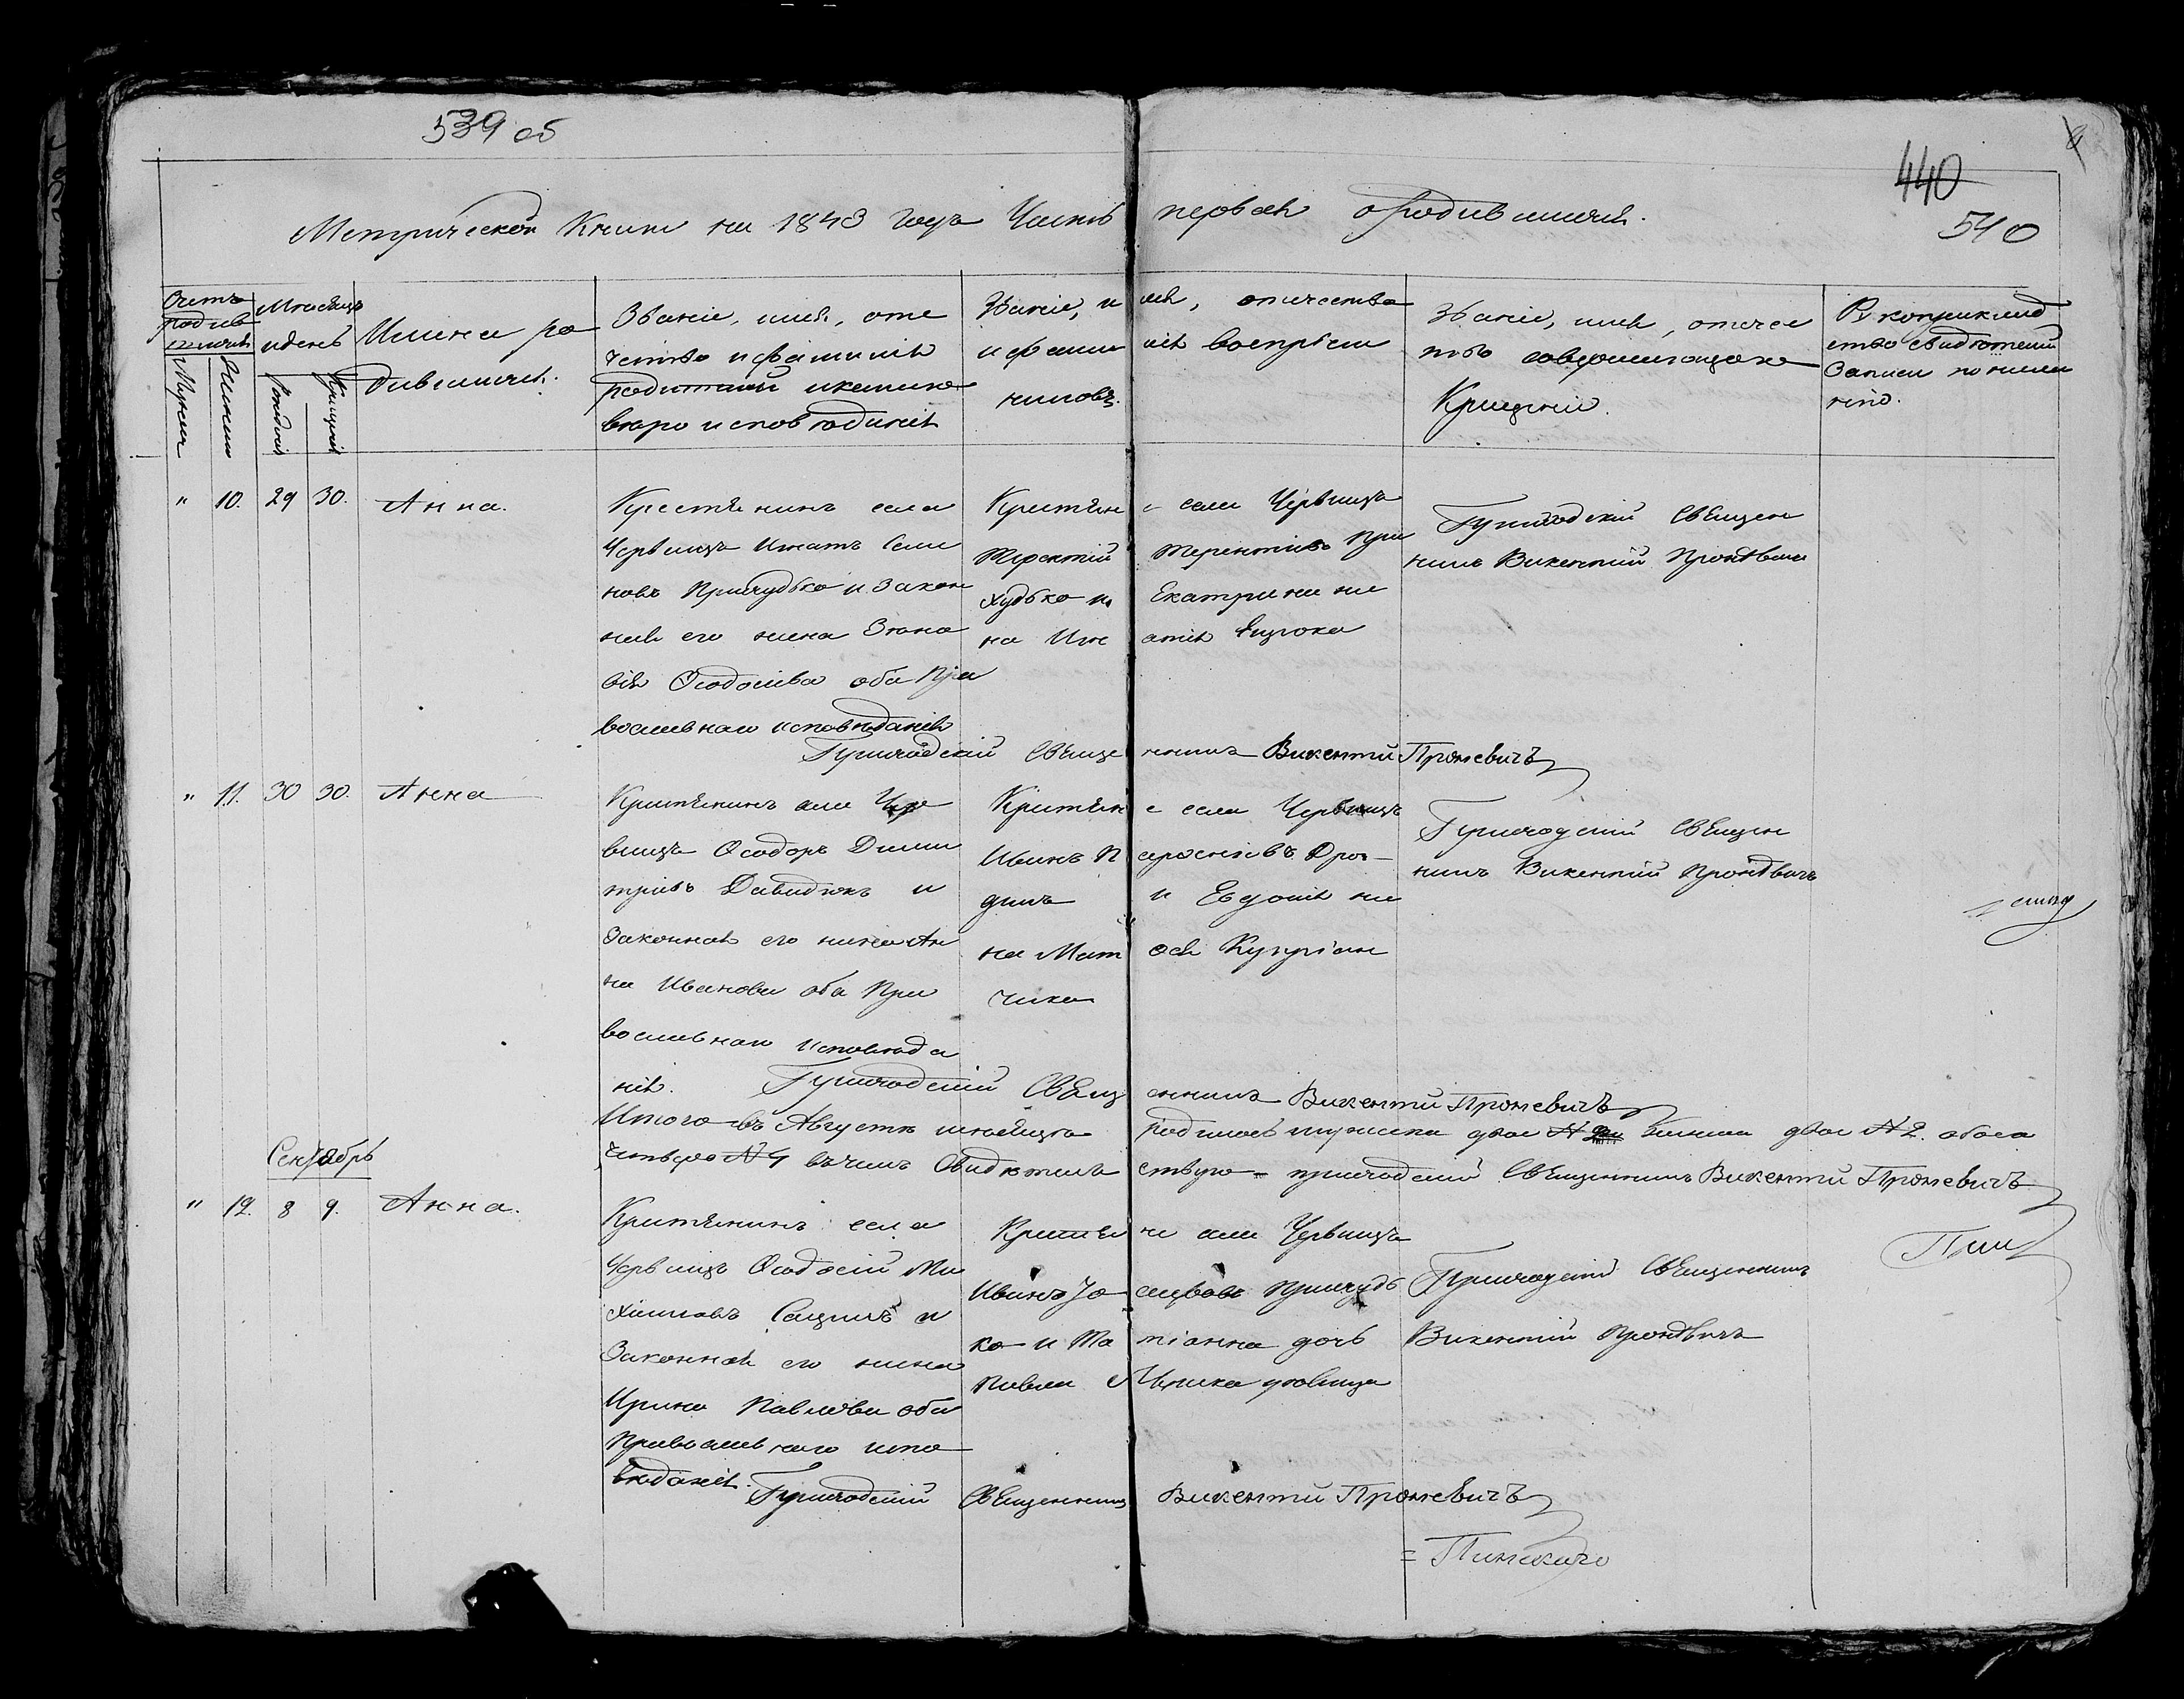 539 об
440
540
Метрической Книги на 1843 годъ Часть первая о родившихся.
Счетъ родив шихся
Мужеска
Женска
Мѣсяцъ и день
Рожденія
Крещенія
Имена ро
дившихся.
Званіе, имя, оте
чество и фамилія
родителей и какого
вѣроисповѣданія
Званіе, имя, отчество
и фамилія воспріем
никовъ.
Званіе, имя, отчес
тво совершающаго
Крещеніе.
Рукоприклад
ство свидѣтелей
Записи по жела
нію.
" 10. 29 30. Анна.
Крестьянинъ села
Червищъ Игнатъ Семе
новъ Прихудько и закон
ная его жена Зѣно
вія Ѳеодосіева оба Пра
вославнаго исповѣданія
Крестьяне села Червищъ
Терентій Терентіевъ При
худько и Екатерина же
на Игнатія
Приходскій Священ
никъ Викентій
Приходскій Священникъ Викентій Проневичъ
" 11. 30 30. Анна
Крестьянинъ села Чер
вищъ Ѳеодоръ Дими
тріевъ Давидюкъ и
законная его жена Ан
на Иванова оба Пра
вославнаго исповѣда
нія.
Крестьяне села Червищъ
Иванъ
и Евдокія же
на
чика
Приходскій Священ
никъ Викентій
Приходскій Священникъ Викентій Проневичъ
Итого въ Августѣ мѣсяцѣ родилось мужеска двое № женска двое № 2. обоего
четверо № 4 въ чемъ свидѣтельствую = приходскій Священникъ Викентій Проневичъ
Сентябрь
" 12. 8 9. Анна.
Крестьянинъ села
Червищъ Ѳеодосій Ми
хаиловъ и
Законная его жена
Ирина Павлова оба
Православнаго испо
вѣданія.
Крестьяне села Червищъ
Иванъ Прихудь
ко и Татіанна дочь
Павла
Приходскій Священникъ
Викентій
Приходскій Священникъ Викентій Проневичъ
= Пинскаго